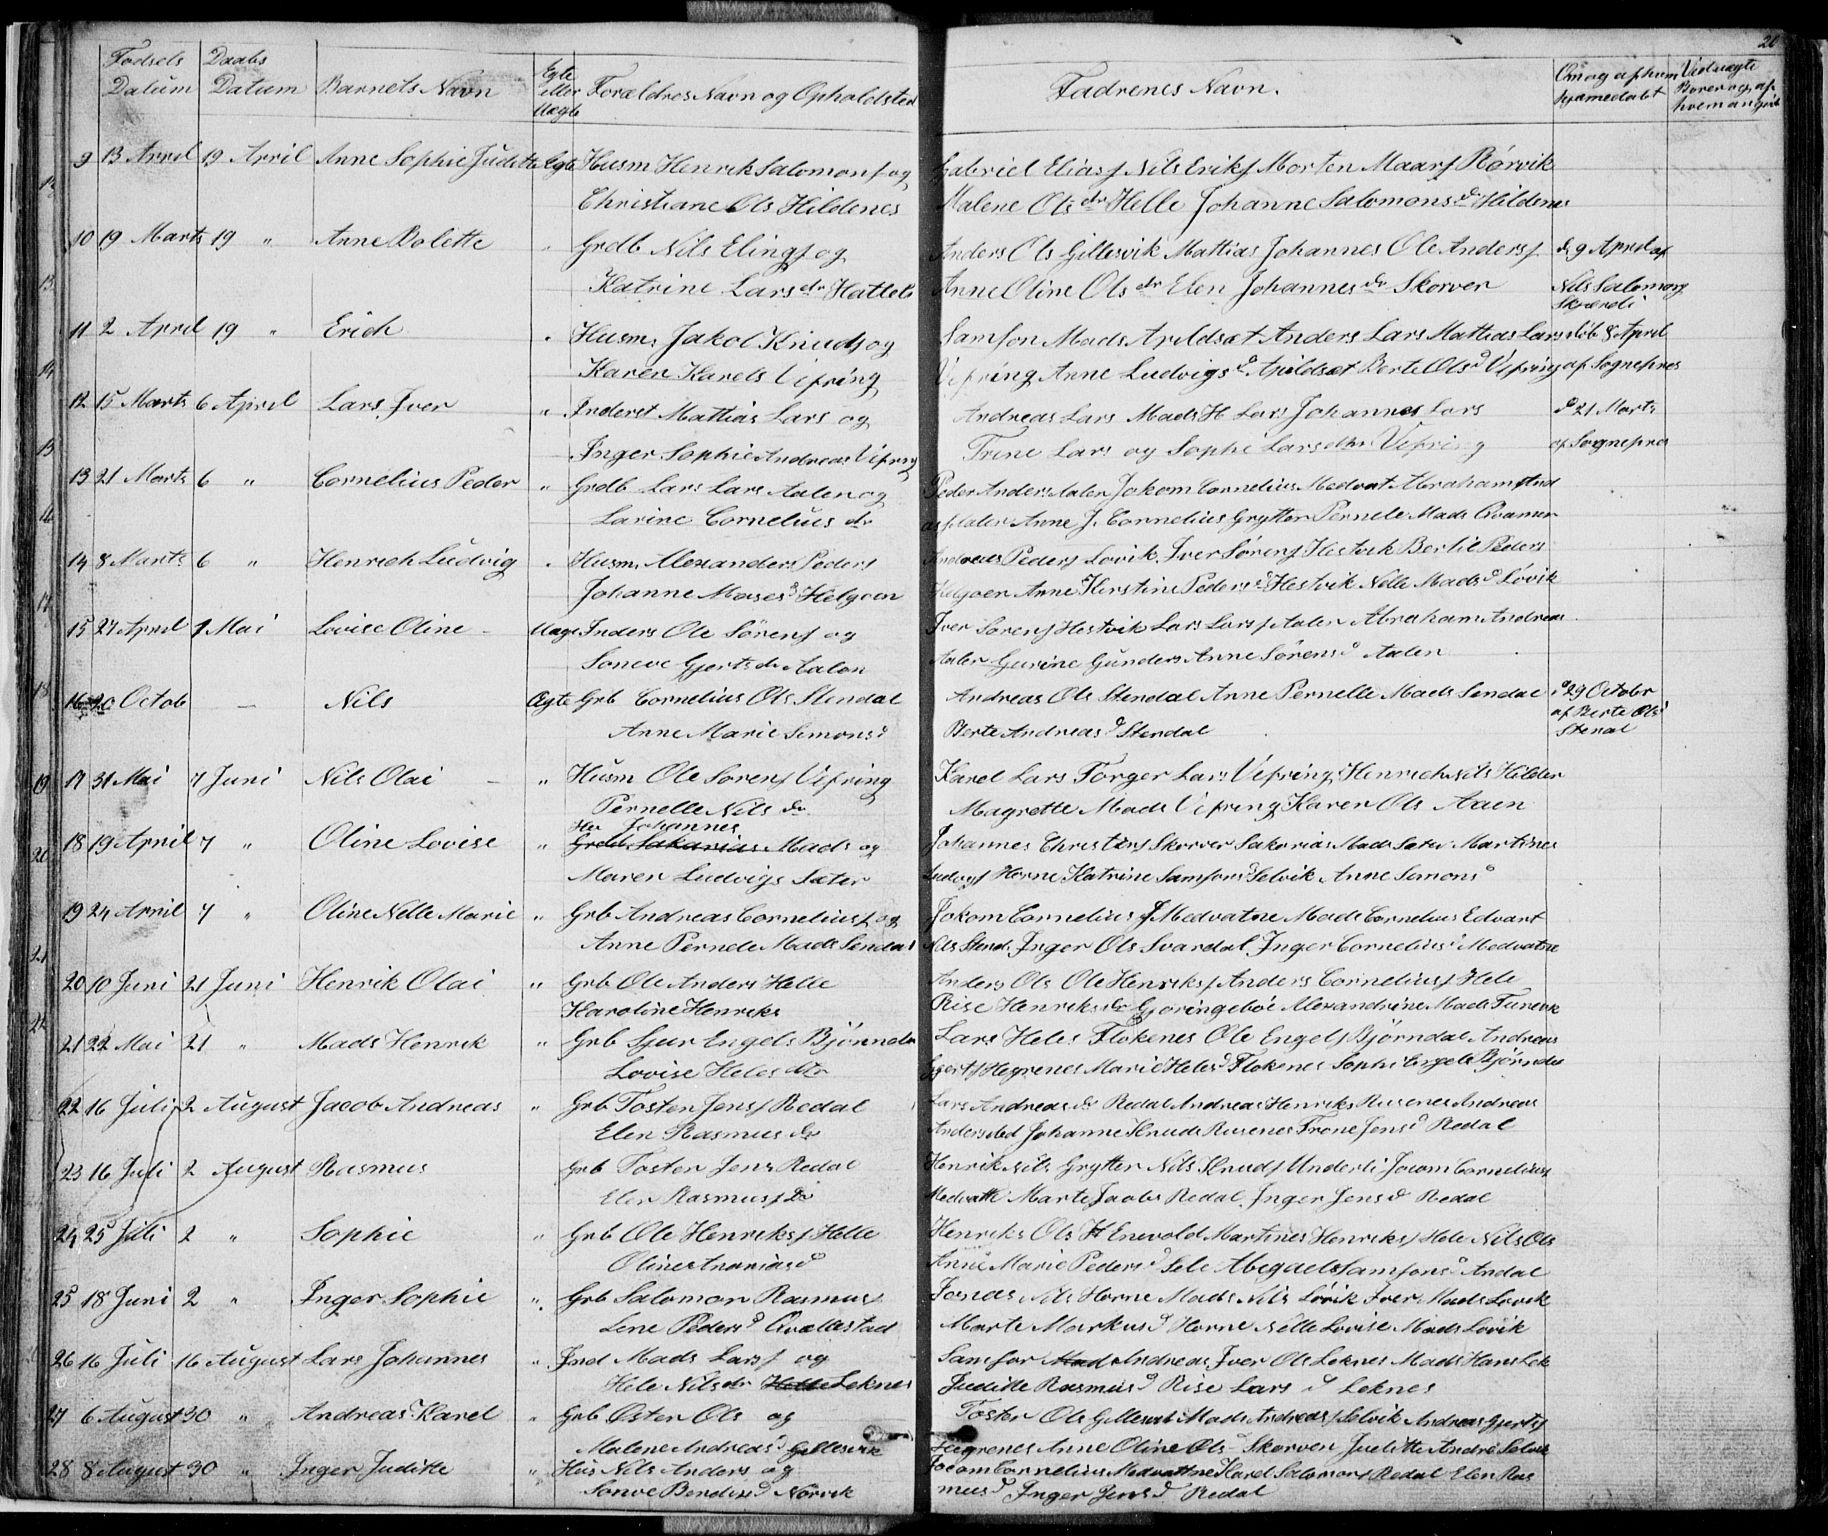 20
Fødsels Datum Daabs Datum Barnets Navn Egte eller Uægte Forældres Navn og Opholdsted
Fadrenes Navn. Om og af hvem hjemmedøbt Ved uægte Barn og af hvem angivet
9 13 April 19 April Anne Sophie Juditte Egte Husm Henrik Salomons og
Christiane Ols Hildenes
Gabriel Elias Nils Eriks Morten Maars Rørvik
Malene Ols dr Helle Johanne Salomons d Hildenes
10 19 Marts 19 " Anne Bolette Grdb Nils Elings og
Katrine Lars dr Hattele
Anders Ols Gillesvik Mattias Johannes Ole Anders
Anne Oline Ols dr Elen Johannes dr Skorver
d 9 April af
Nils Salomons
11 2 April 19 " Erich Husm. Jakob Knuds og
Karen Karels Vefring
Samson Mads Apildset Anders Lars Mattias Lars
Vefring Anne Ludvigs d Apildset Berte Ols d Vefring
døb 8 April
af Sognepres
12 15 Marts 6 April Lars Iver " Inderst Mattias Lars og
Inger Sophie Andreas Vefring
Andreas Lars Mads H Lars Johannes Lars
Trine Lars og Sophi Lars dtr Vefring
d 21 Marts
af Sognepres
13 21 Marts 6 " Cornelius Peder " Grdb Lars Lars Aalen og
Larine Cornelius dr
Peder Anders Aalen Jokom Cornelius Medvat Abraham And
Aalen Anne J. Cornelius Grytter Pernele Mads Kvamen
14 8 Marts 6 " Henrich Ludvig Husm. Alexander Peders
Johanne Moses d Helgoen
Andreas Peders Løvik Iver Sørens Hestvik Bertil Peders
Helgoen Anne Kerstine Peders d Hestvik Nelle Mads d Løvik
15 27 April 1 Mai Lovise Oline - Uægt Inders Ole Sørens og
Gjerts dr Aalen
Iver Sørens Hestvik Lars Lars Aalen Abraham Andreas
Aalen Gurine Gunders Anne Sørens d Aalen
16 20 Octob — Nils Ægte Grb Cornelius Ols Stendal
Anne Marie Simons d
Andreas Ols Stendal Anne Pernelle Mads Sendal
Berte Andreas d Stendal
d 29 Octobr
af Berte Ols d
Stenal
17 31 Mai 7 Juni Nils Olai — " Husm Ole Sørens Vefring
Pernelle Nils dr
Karel Lars Torger Lars Vefring Henrich Nils Hilden
Magrette Mads Vefring Karen Ols Aaen
18 19 April 7 " Oline Lovise " Johannes
Grdb Sakarias Mads og
Maren Ludvigs Sæter
Johannes Christens Skorver Sakarias Mads Sæter Martines
Ludvigs Horne Katrine Samsons d Selvik Anne Simons d
19 24 April 7 " Oline Nelle Marie " Grb Andreas Cornelius og
Anne Pernele Mads Sendal
Jokom Cornelius Medvatne Mads Cornelius Edvart
Nils Stend. Inger Ols Svardal Inger Cornelius Medvatne
20 10 Juni 21 Juni Henrik Olai " Grb Ole Anders Helle
Karoline Henriks
Anders Ols Ole Henriks Anders Cornelius Hele
Rise Henriks dr Gjøringebøe Alexandrine Mads Tunevik
21 22 Mai 21 " Mads Henrik " Grb Sjur Engels Bjønndal
Lovise Heles dtr
Lars Heles Flokenes Ole Engels Bjørndal Andreas
Gjerts Hegrenes Marie Heles d Flokenes Sophi Engels Bjørndal
22 16 Juli 2 August Jacob Andreas " Grb Tosten Jens Redal
Elen Rasmus dr
Lars Andreas dr Redal Andreas Henriks Rusenes Andreas
Johanne Knuds Rusenes Trone Jens d Redal
23 16 Juli 2 August Rasmus Grb Tosten Jens Redal
Elen Rasmus dr
Henrik Nils Grytter Nils Knuds Underli Jocom Cornelius
Medvatt Marte Jacobs Redal Inger Jens d Redal
24 25 Juli 2 " Sophie " Grb Ole Henriks Helle
Oline Ananias d
Henriks Ols H Enevold Martines Henriks Hele Nils Ols
Anne Marie Peders d Sele Abegael Samsons d Ardal
25 18 Juni 2 " Inger Sophie " Grb Salomon Rasmus
Lene Peders d Qvallestad
Jonas Nils Horne Mads Nils Løvik Iver Mads Løvik
Marte Markus d Horne Nelle Lovise Mads Løvik
26 16 Juli 16 August Lars Johannes " Ind Mads Lars og
Hele Nils dr Helle Leknes
Samson Mad Andreas Iver Ols Leknes Mads Hans Lek
Juditte Rasmus d Rise Lars d Leknes
27 6 August 30 " Andreas Karel " Grb Østen Ols og
Malene Andreas d Gillesvik
Tosten Ols Gillesvik Mads Andreas Selvik Andreas Gjerts
Hegrenes Anne Oline Ols Skorven Juditte Andre Selvik
28 8 August 30 " Inger Juditte " Hus Nils Anders og
Bendix d Nørvik
Jocom Cornelius Medvattne Karel Salomons Redal Elen Ras
mus d Inger Jens d Redal